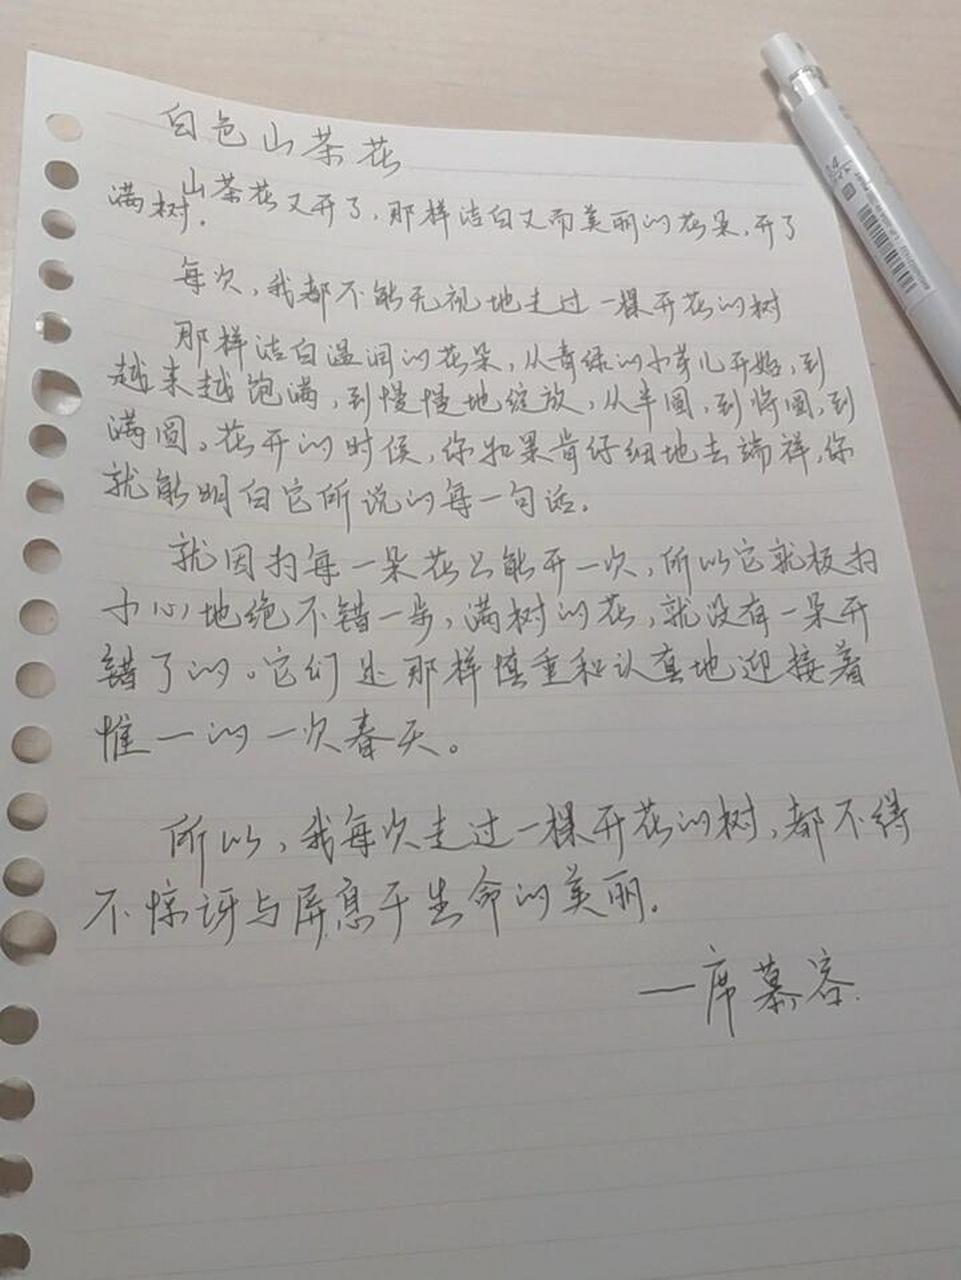 白色山茶花
山茶花又开了,那样洁白又而美丽的花朵,开了
满树.
每次,我都不能无视地走过一棵开花的树
那样洁白温润的花朵,从青绿的小芽儿开始,到
越来越饱满,到慢慢地绽放,从半圆,到将圆,到
满圆。花开的时候,你如果肯仔细地去端祥,你
就能明白它所说的每一句话。
就因为每一朵花只能开一次,所以它就极为
小心地绝不错一步,满树的花,就没有一朵开
错了的。它们是那样慎重和认真地迎接着
惟一的一次春天。
所以,我每次走过一棵开花的树,都不得
不惊讶与屏息于生命的美丽.
—席慕容.